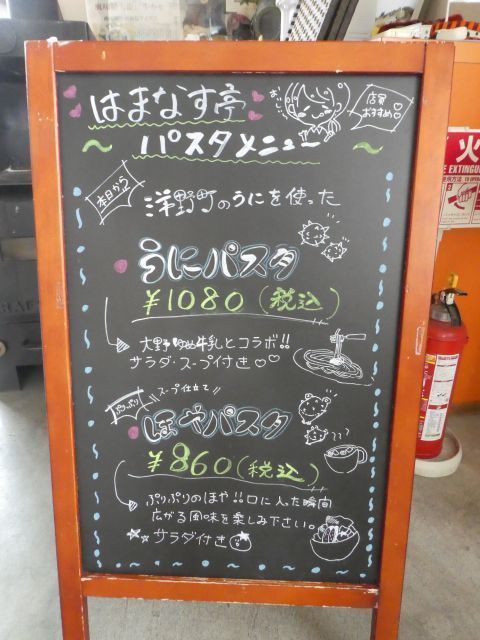 はまなす亭
おいしい
店員
おすすめ♡
～パスタメニュー～
本日から
洋野町のうにを使った
うにパスタ
￥1080(税込)
大野ゆめ牛乳とコラボ!!
サラダ・スープ付き♡♡
ぷりぷり
スープ仕立て
ほやパスタ
???
￥860(税込)
ぷりぷりのほや!!口に入った瞬間
広がる風味を楽しみ下さい。
サラダ付き
火
E EXTINGUIS